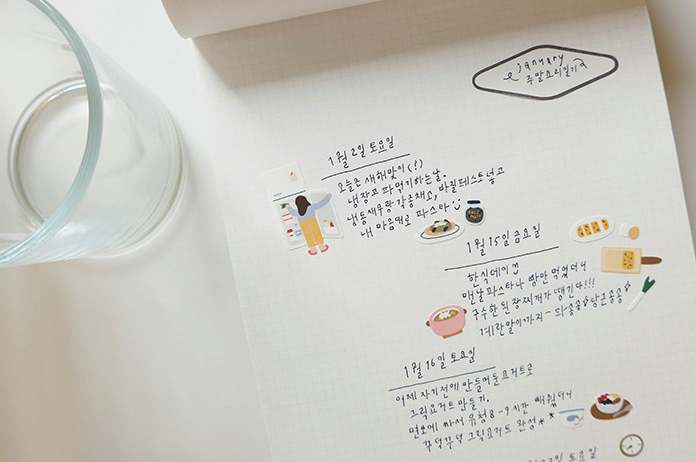 january
주말요리일기
1월 2일 토요일
오늘은 새해맞이(!)
냉장고 파먹기하는날.
냉동새우랑 각종채소! 바질페스토넣고
내 마음대로 파스타
1월 15일 금요일
한식데이
맨날 파스타나 빵만 먹었더니
구수한 된장찌개가 땡긴다!!!
계란말이까지~ 파송송 당근송송
1월 16일 토요일
어제 자기전에 만들어둔요거트로
그릭요거트 만들기.
면보에 싸서 유청 8-9시간 빼줬더니
꾸덕꾸덕 그릭요거트 완성**
토요일